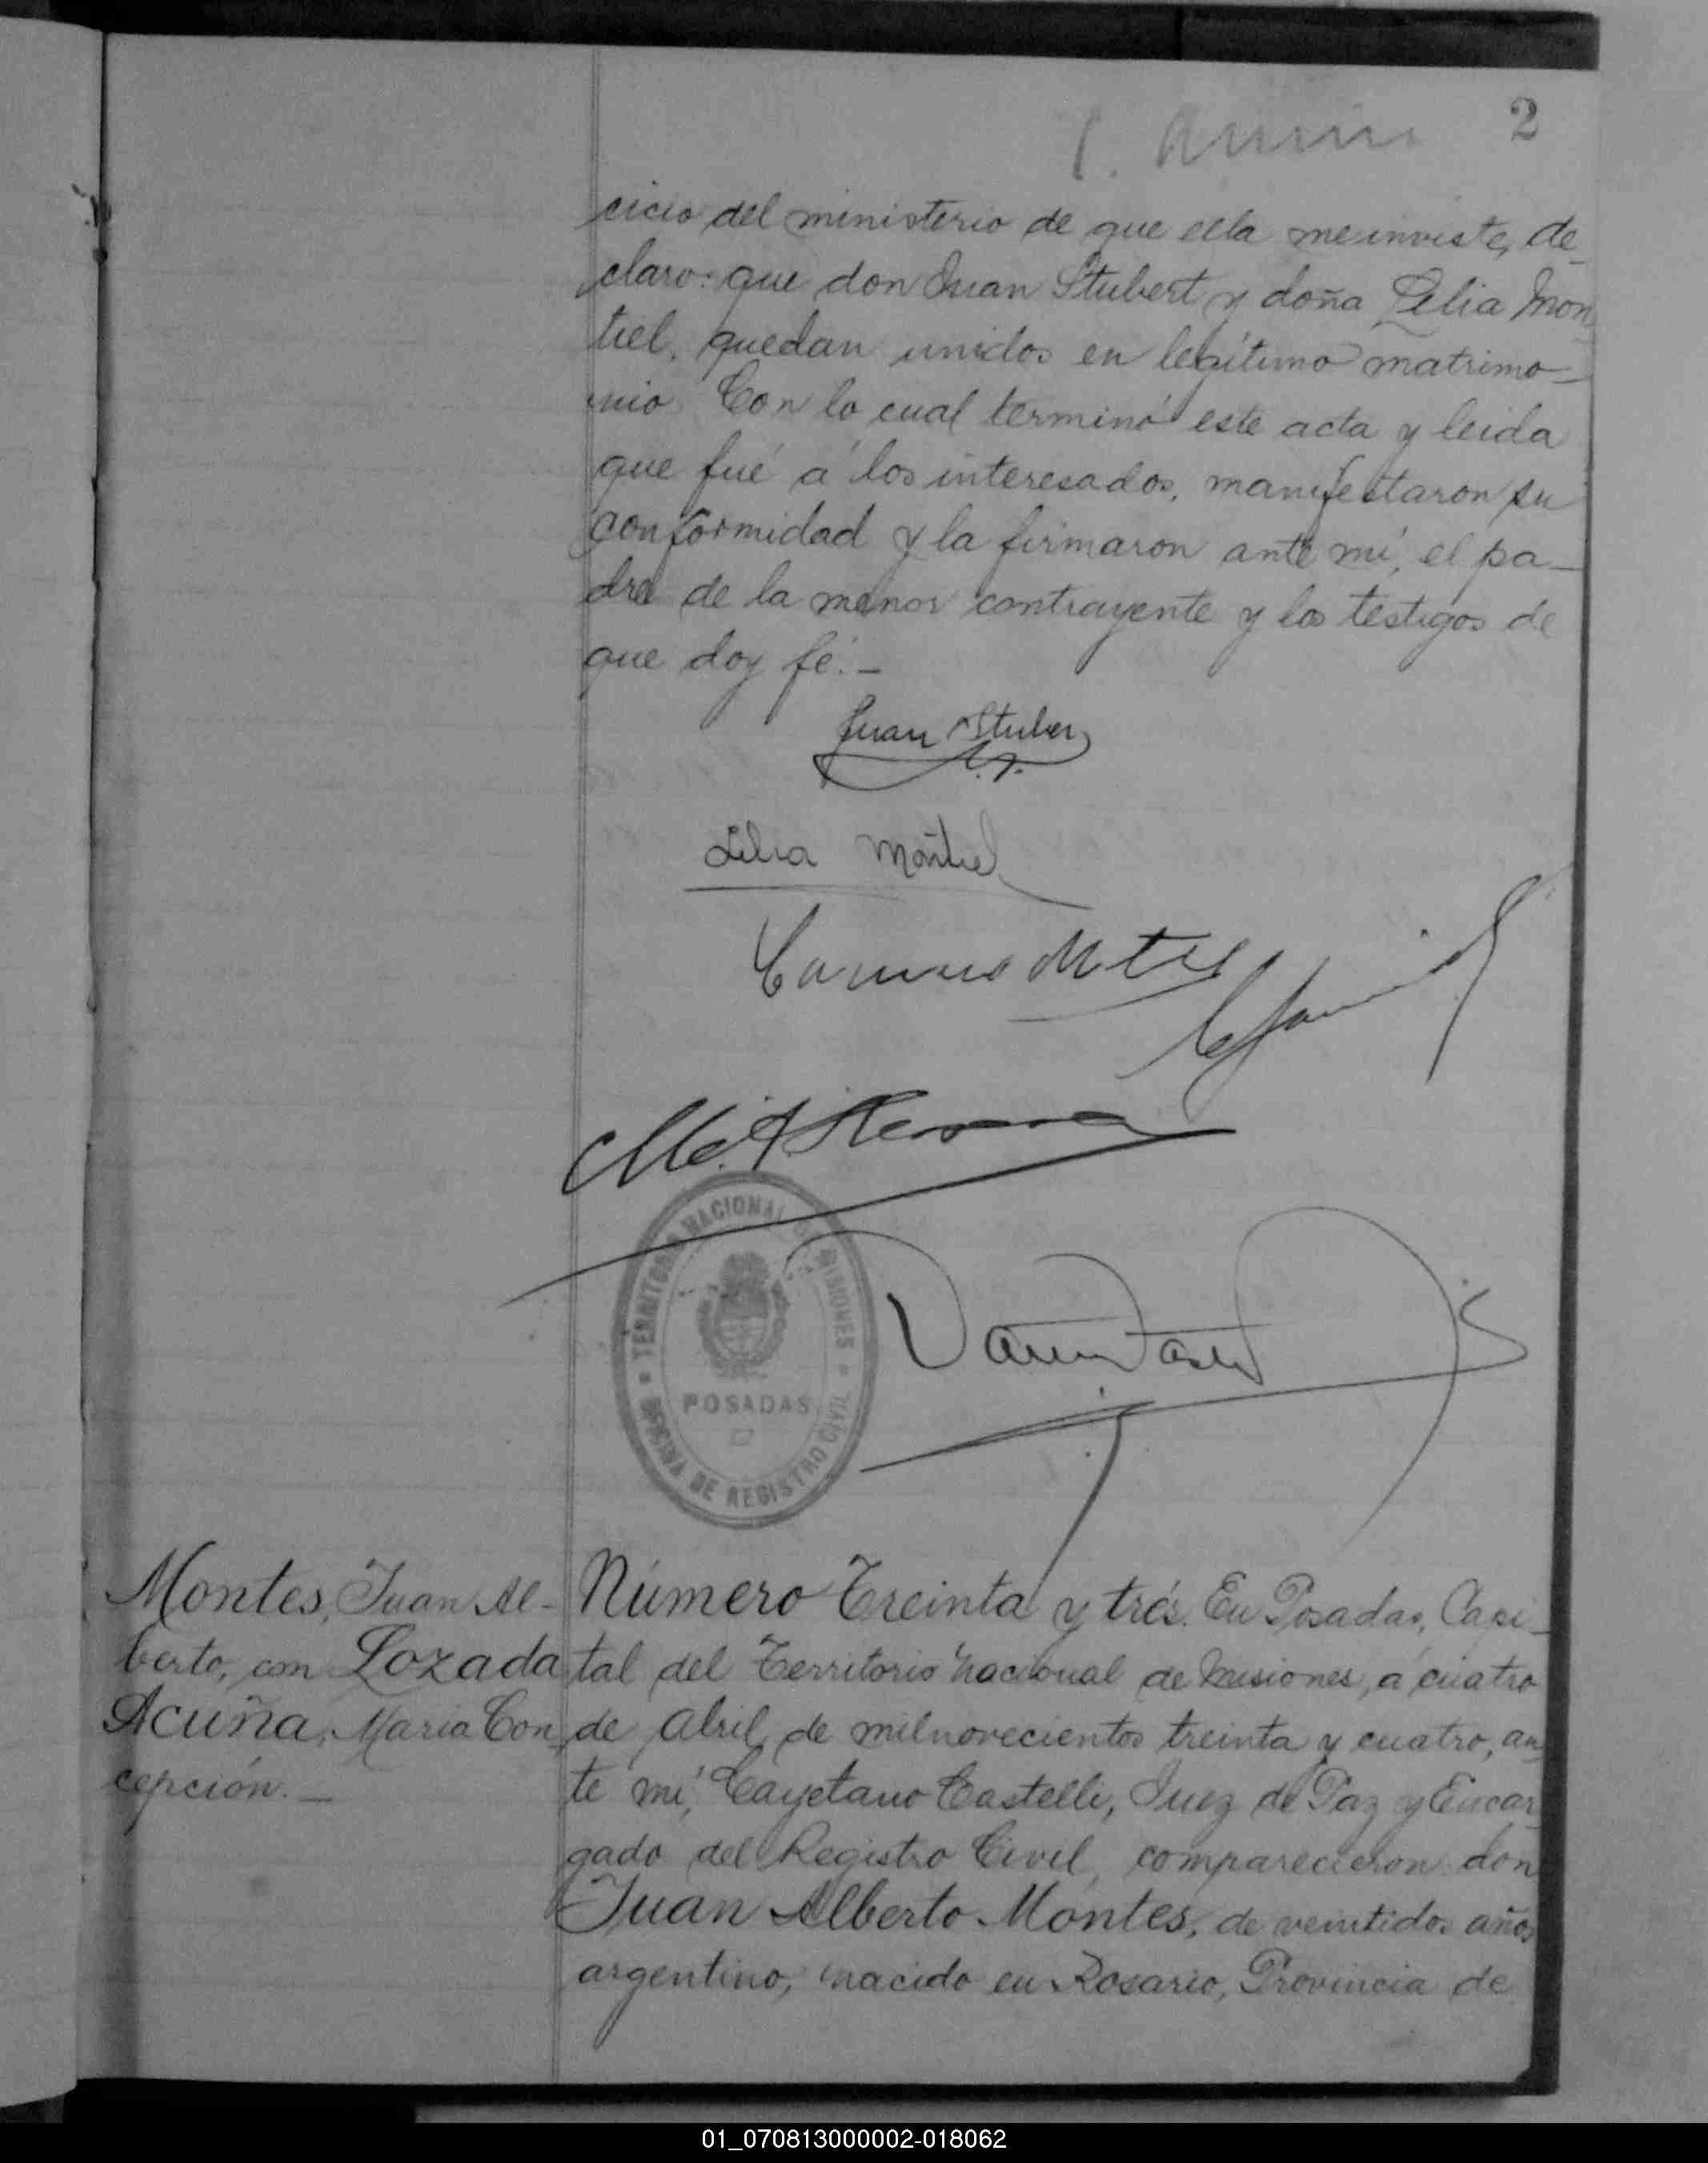 2
cicio del ministerio de que ella me inviste, de-
claro: que don Juan Stubert y doña Lelia Mon
tiel, quedan unidos en legítimo matrimo-
nio. Con lo cual terminó este acta y leida
que fué á los interesados, manifestaron su
conformidad y la firmaron ante mí, el pa-
dre de la menor contrayente y los testigos de
que doy fé.-
Juan Stuber
Lelia Montiel
TERRITORIO NACIONAL DE MISIONES
POSADAS
OFICINA DE REGISTRO CIVIL
Montes, Juan Al-
berto, con Lozada
Acuña, Maria Con
cepción.-
Número Treinta y trés. En Posadas, Capi-
tal del Territorio Nacional de Misiones, á cuatro
de Abril de milnovecientos treinta y cuatro, an
te mí, Cayetano Castelli, Juez de Paz y Encar
gado del Registro Civil, comparecieron: don
Juan Alberto Montes, de veintidos años
argentino, nacido en Rosario, Provincia de
01_070813000002-018062